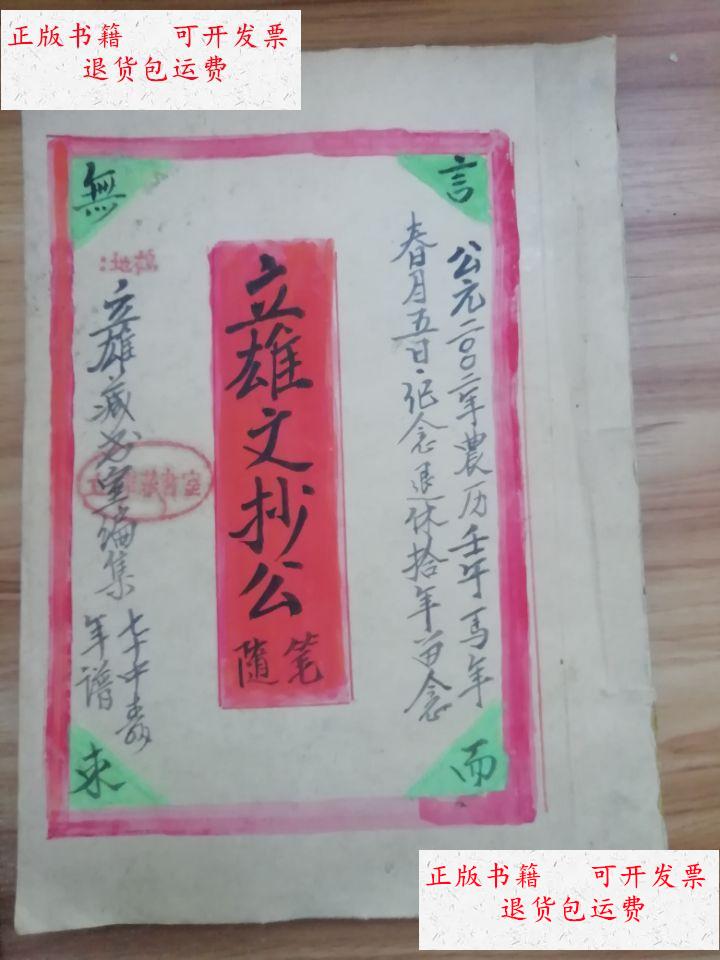 正版书籍 可开发票
退货包运费
言
無
公元二〇〇二年農历壬午马年
春月五日·纪念退休拾年留念
立雄文抄公
隨笔
立雄藏书室编集
七十中寿
年谱
而
来
正版书籍 可开发票
退货包运费